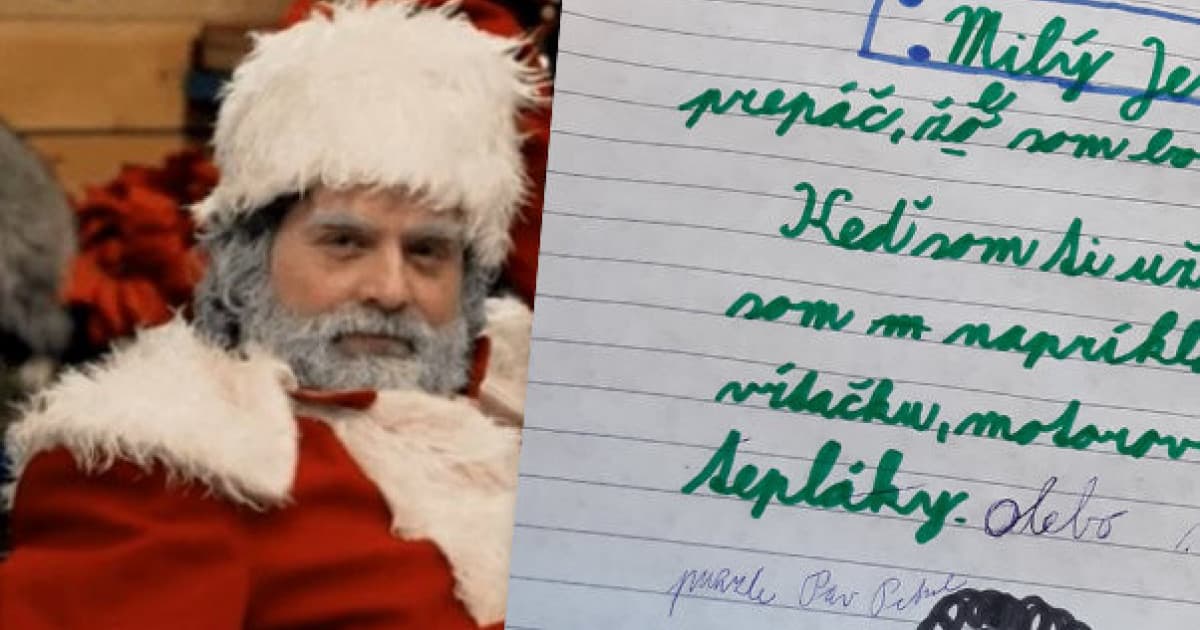 Milý Je
prepáč, že som bo
Keď som ti už
som m napríkl
vŕtačku, motorov
tepláky. alebo
puzzle Pav Pat